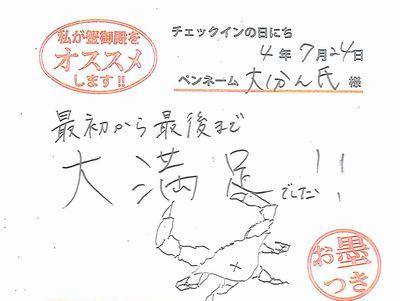 私が蟹御殿を
オススメ
します!!
チェックインの日にち
4年7月24日
ペンネーム 大分ん氏 様
最初から最後まで
大満足でした!!
お墨
つき